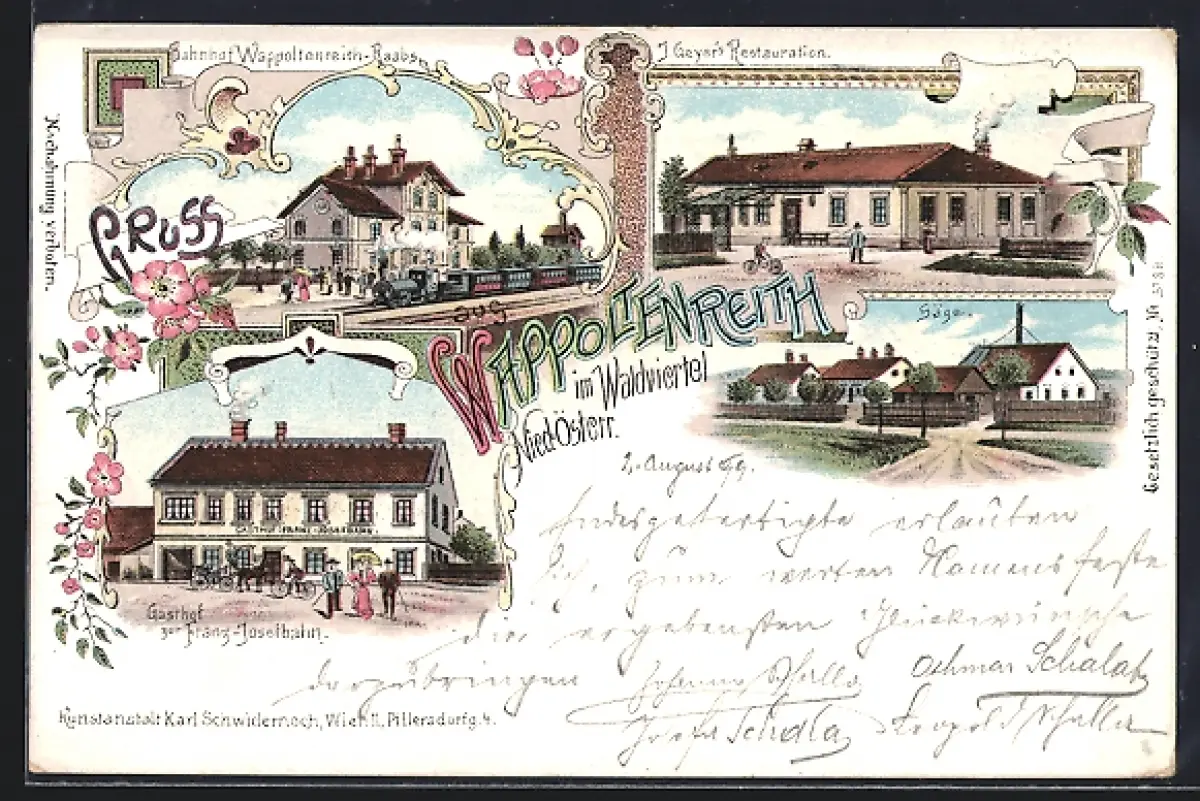 Bahnhof Wappoltenreith-Raabs.
J. Geyer's Restauration.
Nachahmung verboten.
GRUSS
aus
WAPPOLTENREITH
im Waldviertel
Nied. Österr.
Säge.
Gesetzlich geschützt, №
GASTHOF FRANZ-JOSEFBAHN
Gasthof
zur Franz-Josefbahn.
2. August 99.
Endesgefertigte erlauben
sich, zum werten Namensfeste
die ergebensten Glückwünsche
darzubringen
Othmar Schalat
Josefa
Leopold
Kunstanstalt Karl Schwidernoch, Wien II., Pillersdorfg. 4.